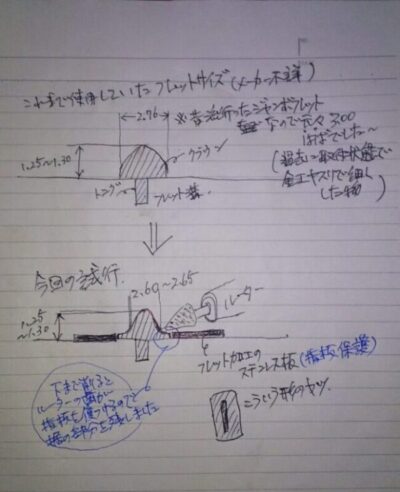 これまで使用していたフレットサイズ(メーカー不詳)
2.76
※昔流行ったジャンボフレット
なので元々3.00
ほどでした〜
(過去に取付状態で
金工ヤスリで細く
した物)
1.25〜1.30
クラウン
タング
フレット溝
今回の試行.
2.60〜2.65
ルーター
1.25
〜1.30
フレット加工の
ステンレス板(指板保護)
こういう形のヤツ.
下まで削ると
ルーターの歯が
指板を傷つけるので
裾の部分を残しました